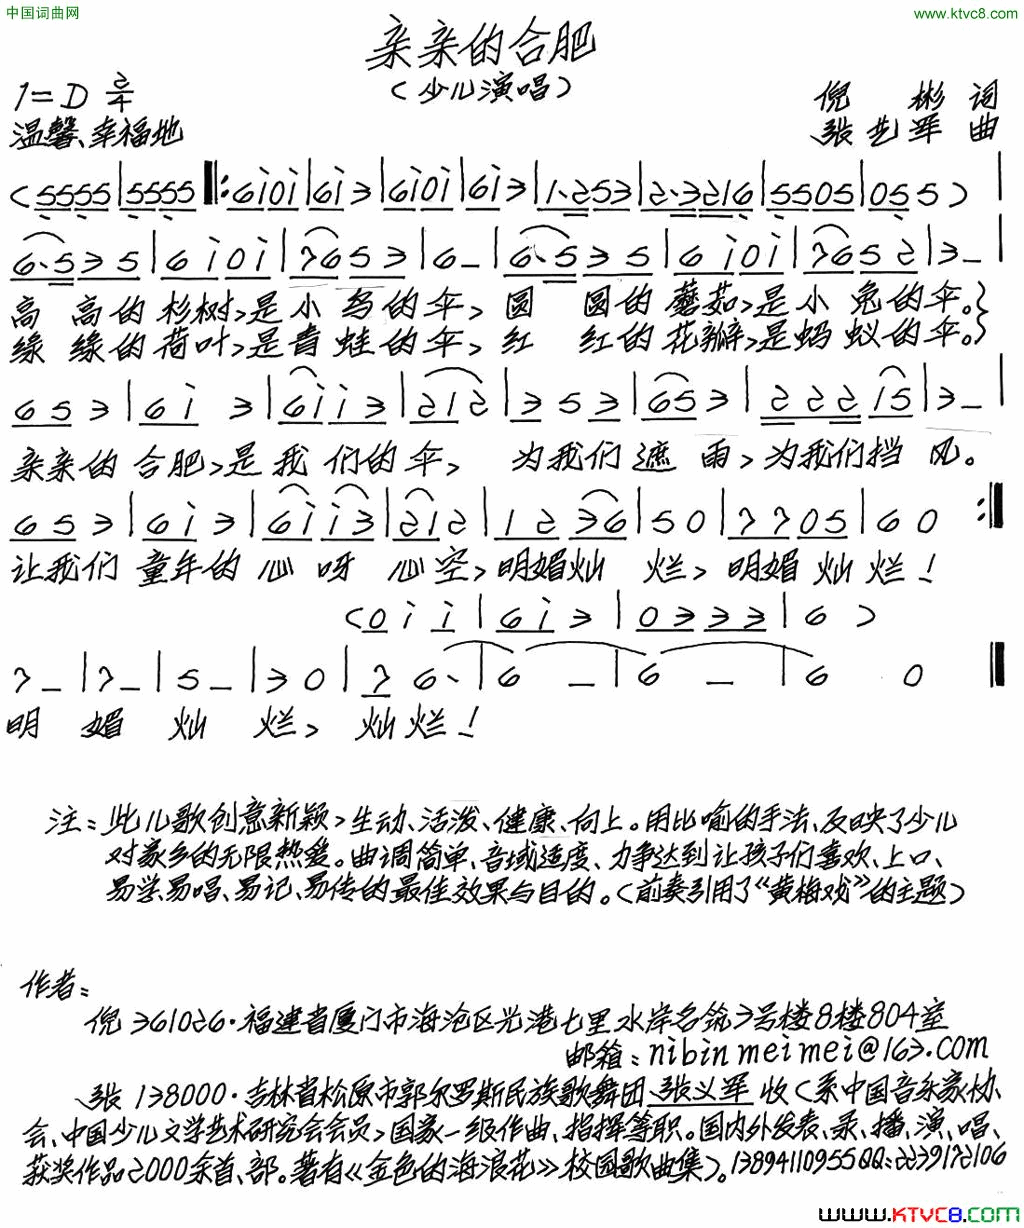 中国词曲网
www.ktvc8.com
亲亲的合肥
(少儿演唱)
1=D 2/4
倪 彬 词
温馨、幸福地
张艺军 曲
(5555|5555‖:6i0i|6i3|6i0i|6i3|1·253|2·3216|5505|055)|
6·535|6i0i|7653|6-|6·535|6i0i|7652|3-|
高高的杉树,是小鸟的伞,圆圆的蘑菇,是小兔的伞。}
绿绿的荷叶,是青蛙的伞,红红的花瓣,是蚂蚁的伞。}
653|6i 3|6ii3|212|353|653|22215|3-|
亲亲的合肥,是我们的伞,为我们遮雨,为我们挡风。
653|6i3|6ii3|212|1236|50|7705|60:‖
让我们童年的心呀心空,明媚灿烂,明媚灿烂!
(0ii|6i3|0333|6)
7-|7-|5-|30|76·|6-|6-|60‖
明媚灿烂,灿烂!
注:此儿歌创意新颖,生动、活泼、健康、向上。用比喻的手法、反映了少儿
对家乡的无限热爱。曲调简单、音域适度、力争达到让孩子们喜欢、上口、
易学、易唱、易记、易传的最佳效果与目的。(前奏引用了《黄梅戏》的主题)
作者:
倪 361026·福建省厦门市海沧区兴港七里水岸名筑3号楼8楼804室
邮箱:nibinmeimei@163.com
张 138000·吉林省松原市郭尔罗斯民族歌舞团 张义军 收(系中国音乐家协
会、中国少儿文学艺术研究会会员,国家一级作曲、指挥等职。国内外发表、录、播、演、唱、
获奖作品2000余首、部。著有《金色的海浪花》校园歌曲集)。13894110955QQ:2239172106
www.KTVC8.COM